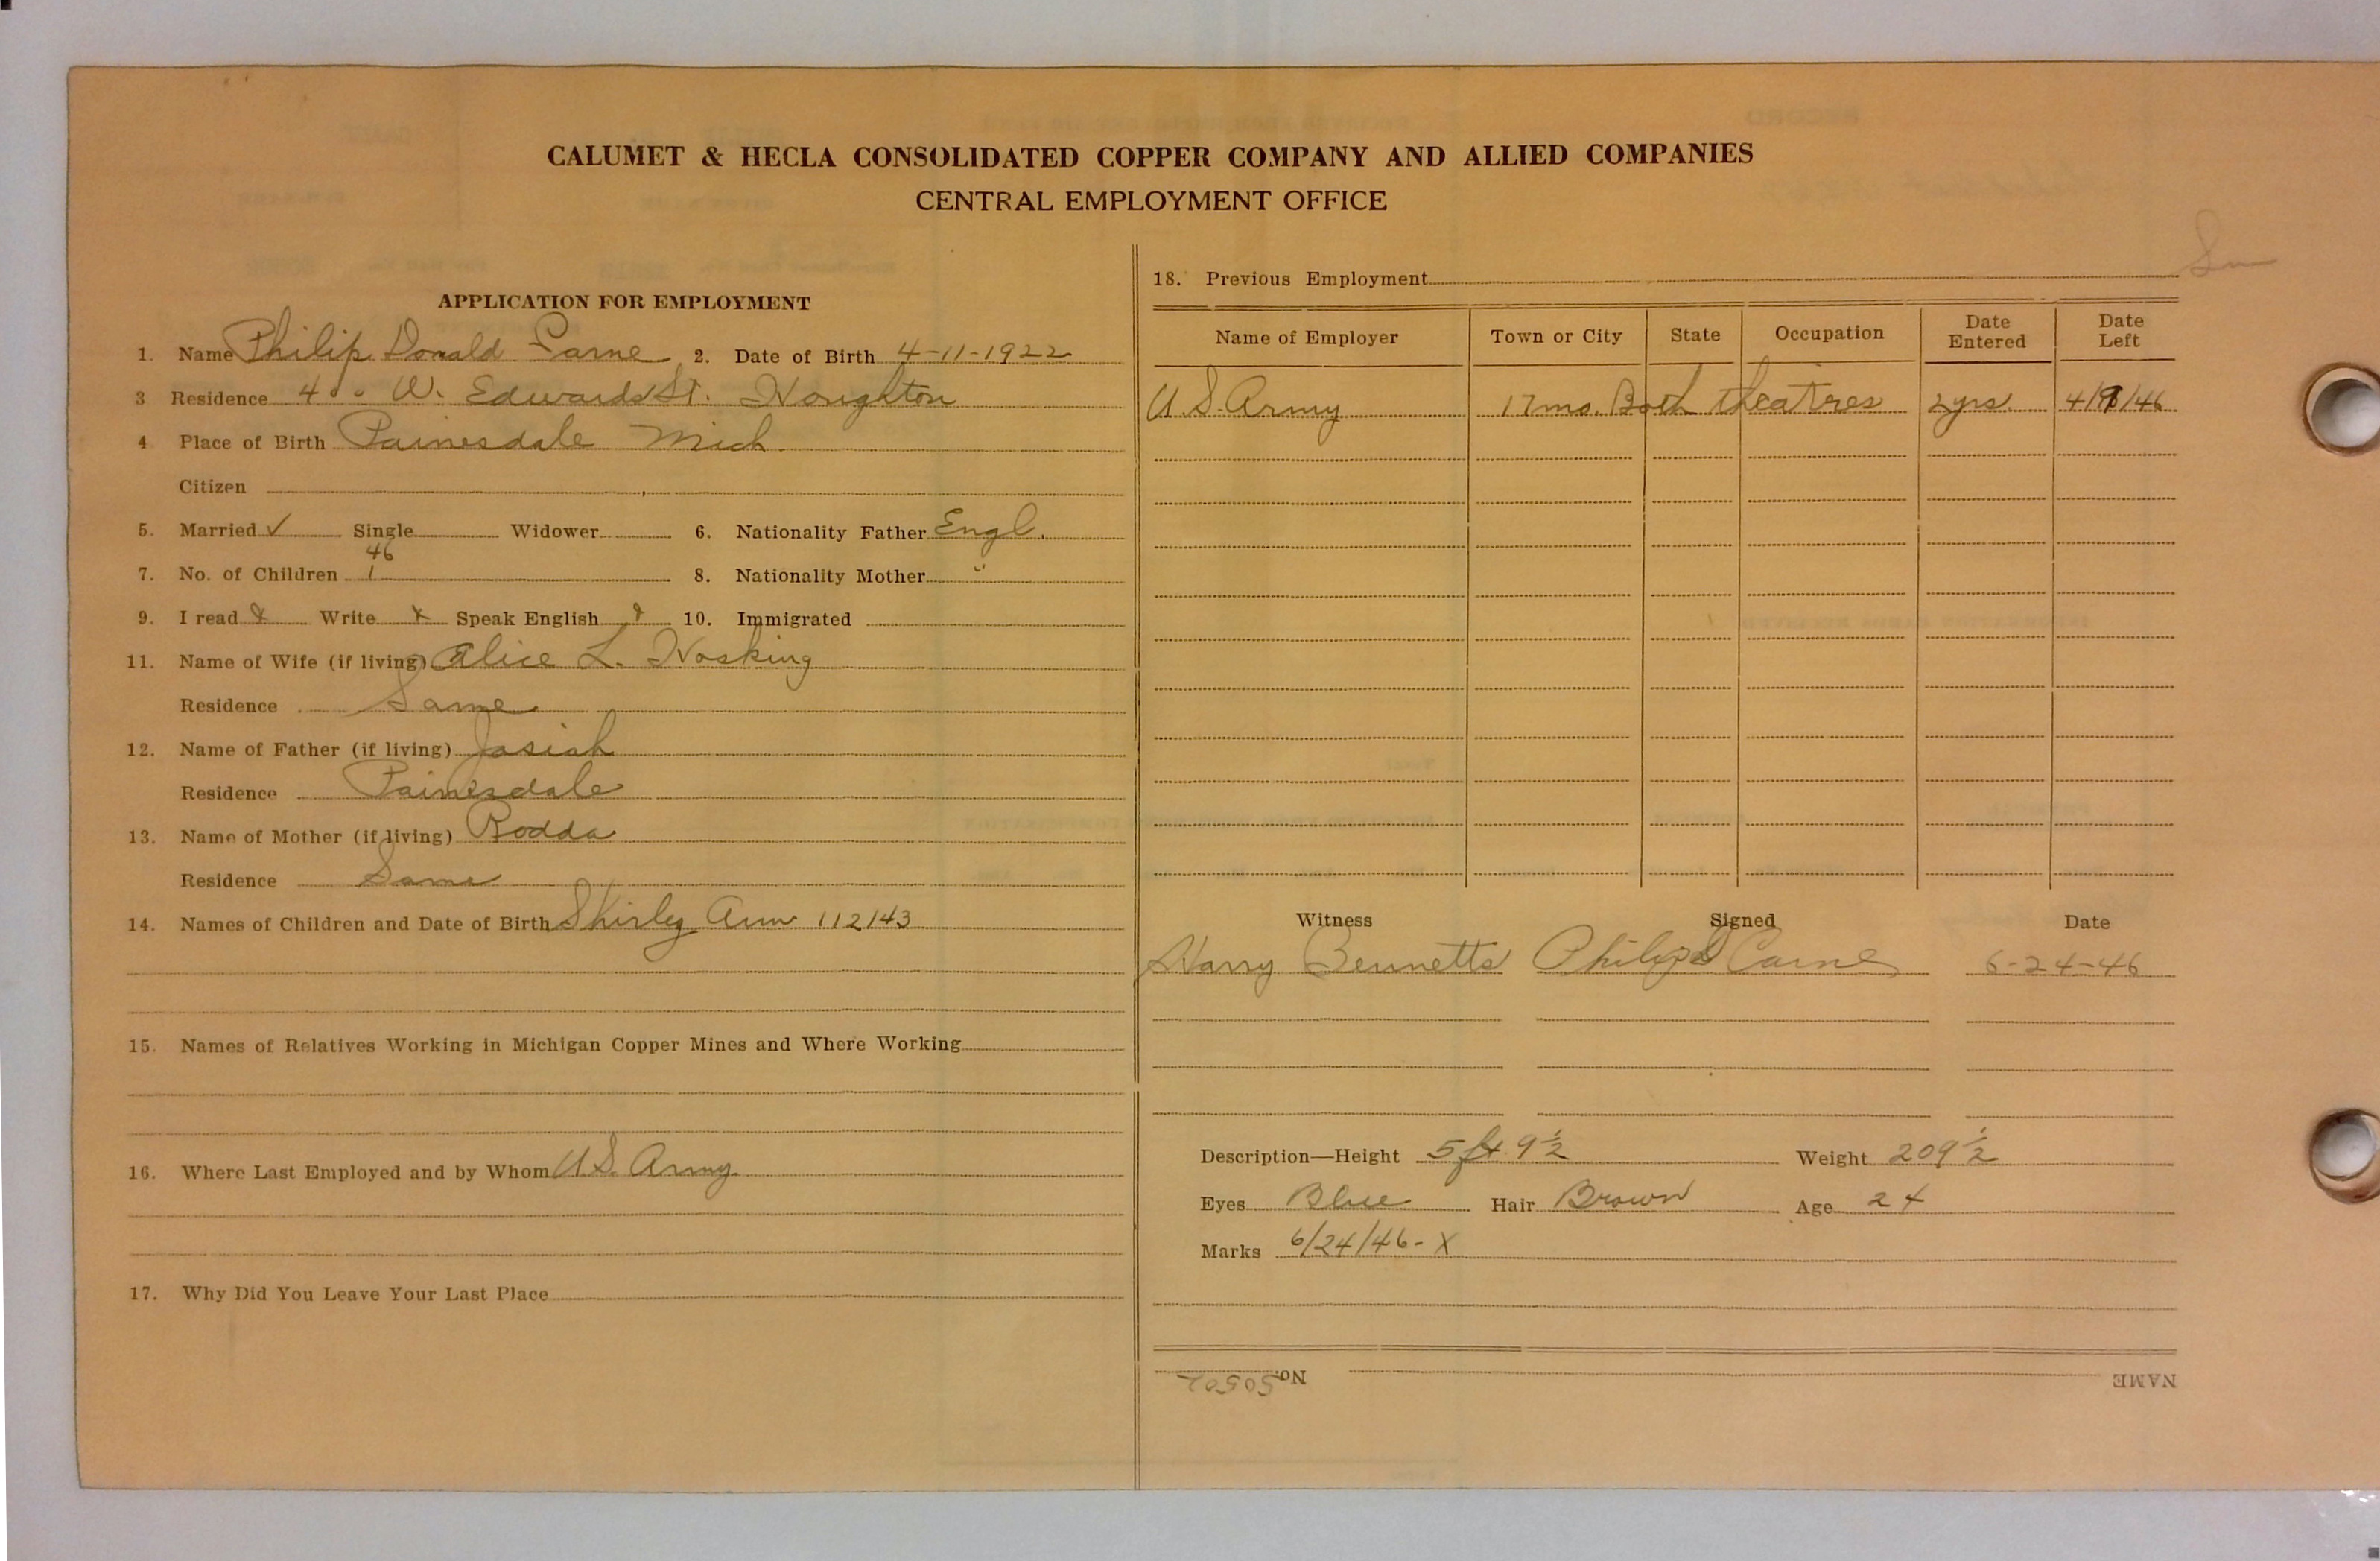 CALUMET & HECLA CONSOLIDATED COPPER COMPANY AND ALLIED COMPANIES
CENTRAL EMPLOYMENT OFFICE
APPLICATION FOR EMPLOYMENT
1. Name Philip Donald Carne 2. Date of Birth 4-11-1922
3 Residence 400 W. Edwards St. Houghton
4 Place of Birth Painesdale Mich.
Citizen
5. Married ✓ Single Widower 6. Nationality Father Engl.
46
7. No. of Children 1 8. Nationality Mother "
9. I read x Write x Speak English x 10. Immigrated
11. Name of Wife (if living) Alice L. Hosking
Residence Same
12. Name of Father (if living) Josiah
Residence Painesdale
13. Name of Mother (if living) Rodda
Residence Same
14. Names of Children and Date of Birth Shirley Ann 112143
15. Names of Relatives Working in Michigan Copper Mines and Where Working
16. Where Last Employed and by Whom U.S. Army
17. Why Did You Leave Your Last Place
18. Previous Employment
Name of Employer Town or City State Occupation Date Entered Date Left
U.S. Army 17 mo. Both theatres 2 yrs. 4/9/46
Witness Signed Date
Harry Bennetts Philip D Carne 6-24-46
Description—Height 5 ft. 9 1/2 Weight 209 1/2
Eyes Blue Hair Brown Age 24
Marks 6/24/46 - X
NAME No. 50502